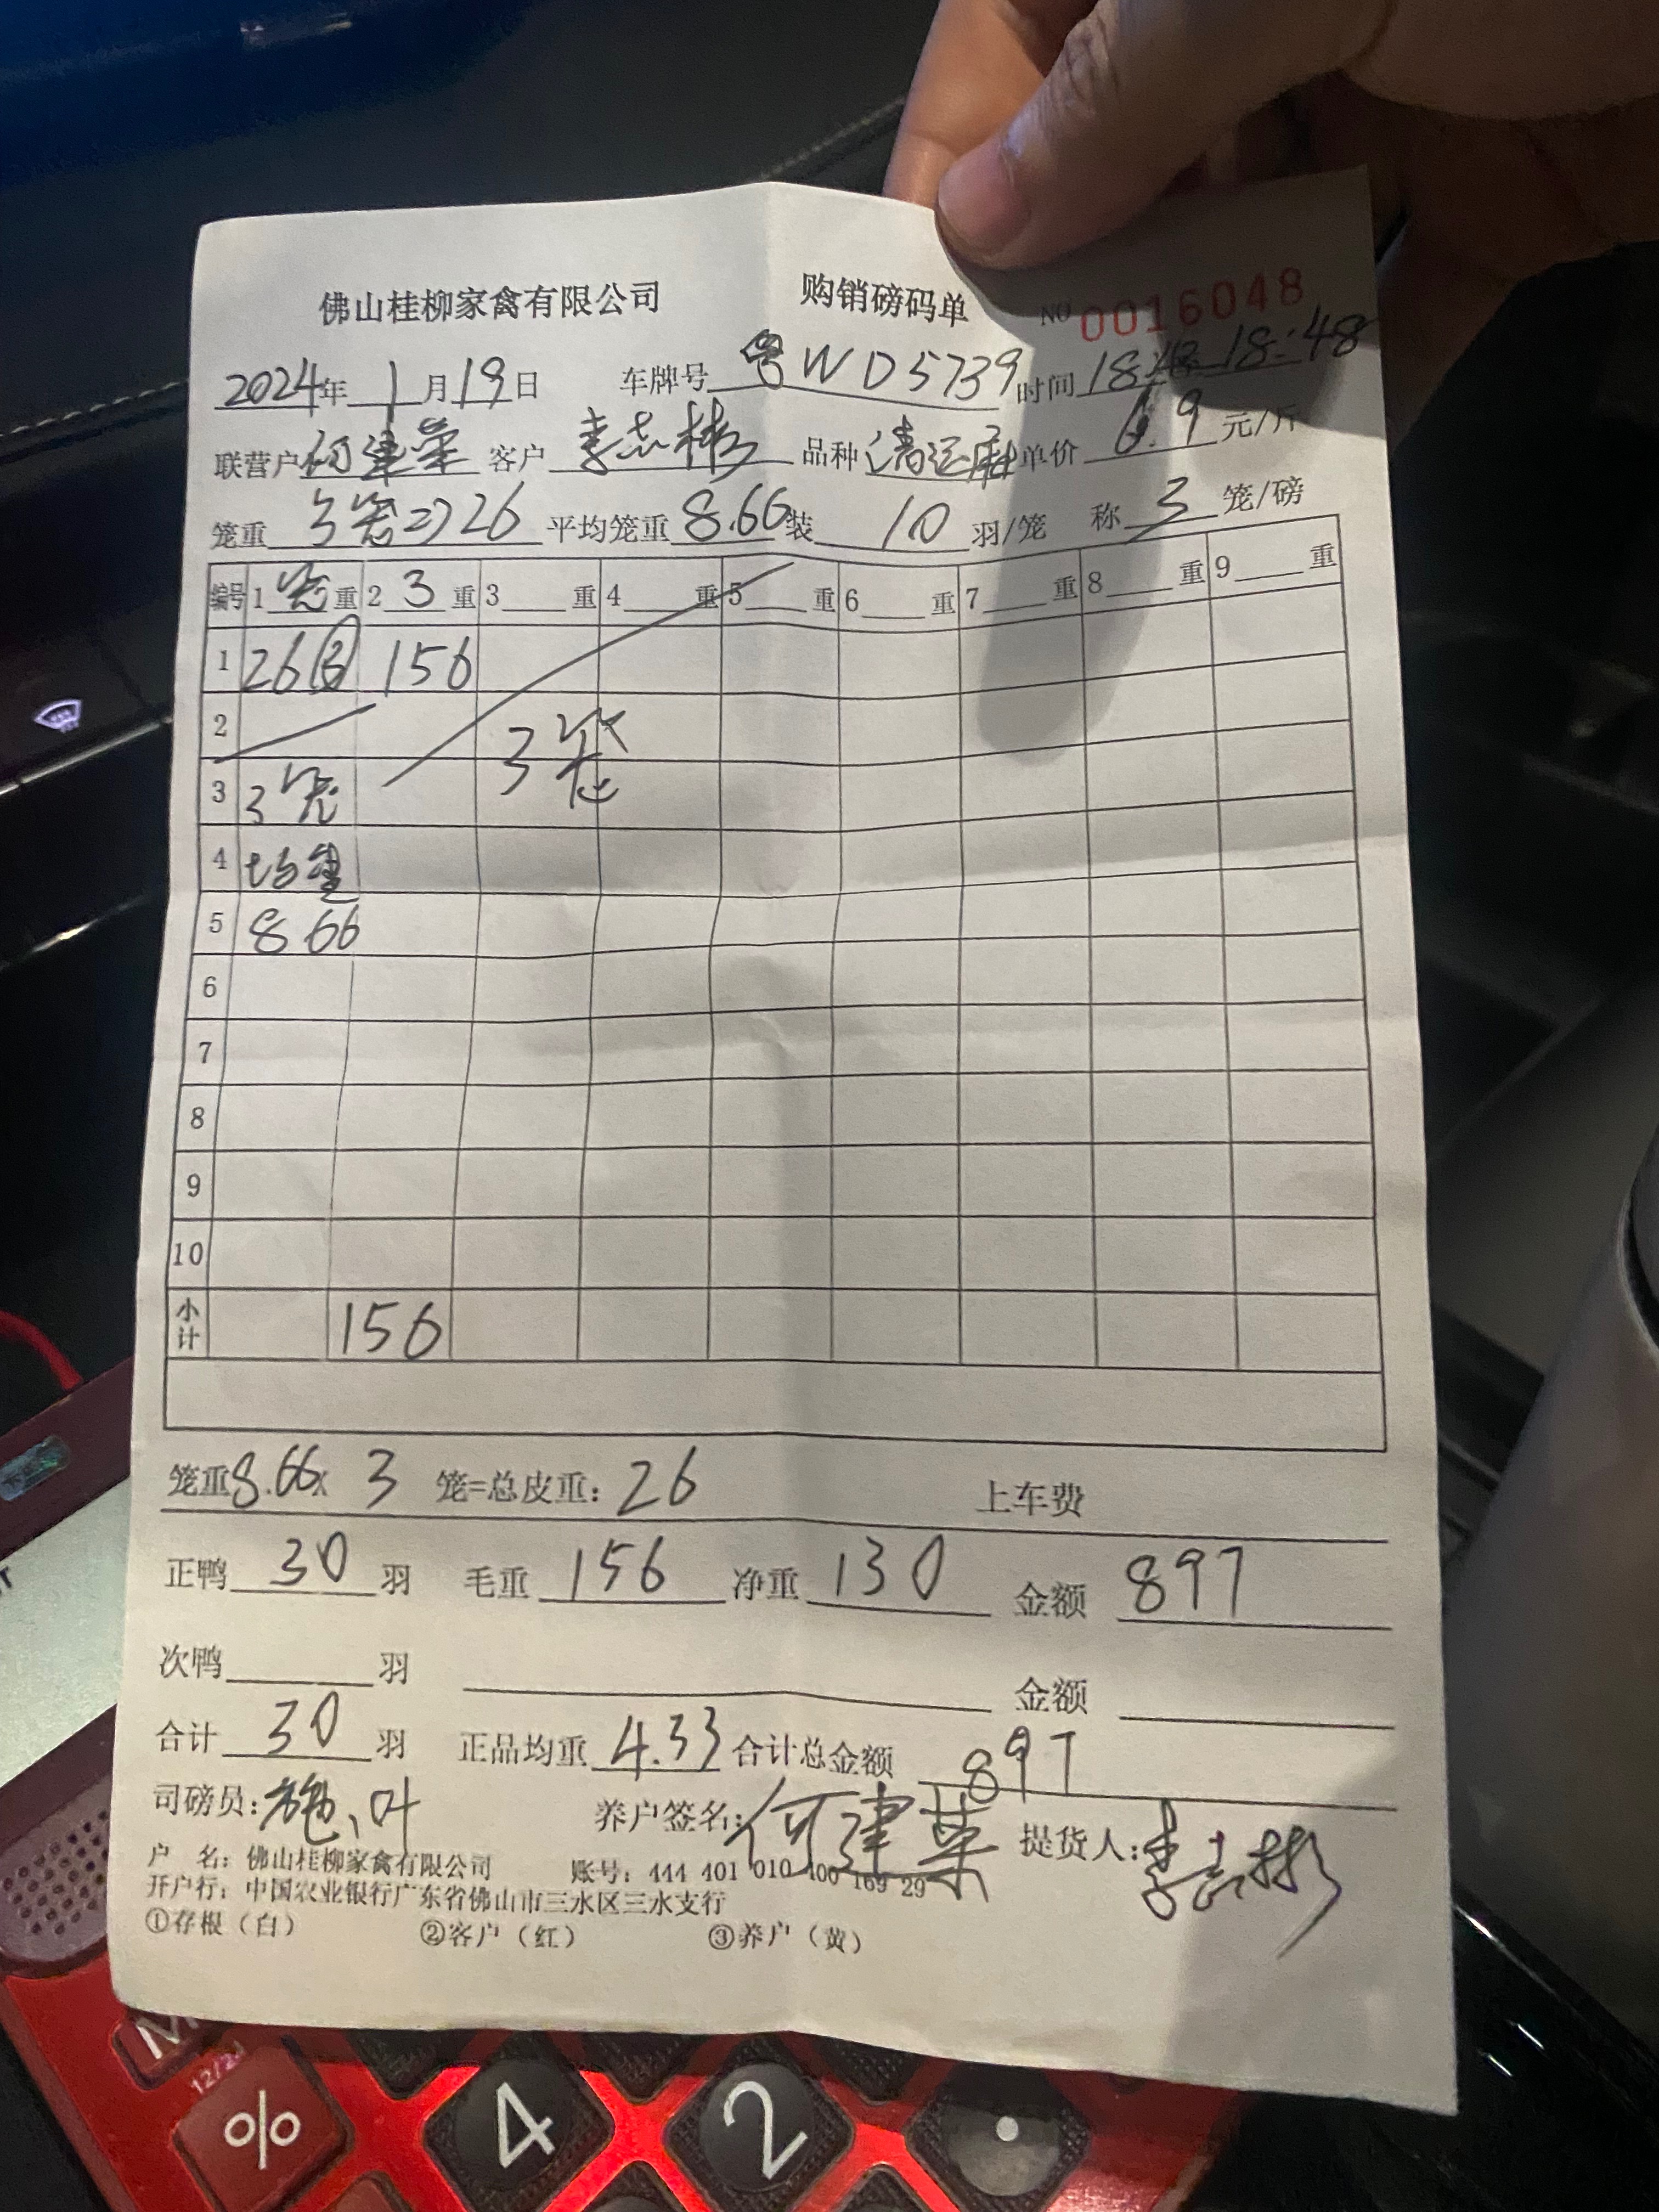 佛山桂柳家禽有限公司 购销磅码单 NO 0016048
2024年 1 月 19 日 车牌号 粤WD5739 时间 18:48
联营户 何建荣 客户 李志彬 品种 清远麻 单价 6.9 元/斤
笼重 3笼=>26 平均笼重 8.66 装 10 羽/笼 称 3 笼/磅
编号 1 笼 重 2 3 重 3 重 4 重 5 重 6 重 7 重 8 重 9 重
1 26③ 156
2 3笼
3 3笼
4 均重
5 8.66
6
7
8
9
10
小计 156
笼重8.66x 3 笼=总皮重: 26 上车费
正鸭 30 羽 毛重 156 净重 130 金额 897
次鸭 羽 金额
合计 30 羽 正品均重 4.33 合计总金额 897
司磅员: 、叶 养户签名: 何建荣 提货人: 李志彬
户 名: 佛山桂柳家禽有限公司 账号: 444 401 010 400 169 29
开户行: 中国农业银行广东省佛山市三水区三水支行
①存根（白） ②客户（红） ③养户（黄）
12/24
% 4 2 .